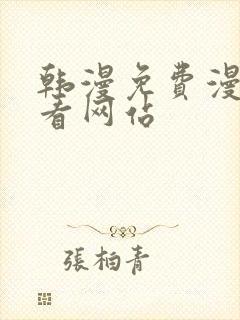 韩漫免费漫
看网站
張柏青